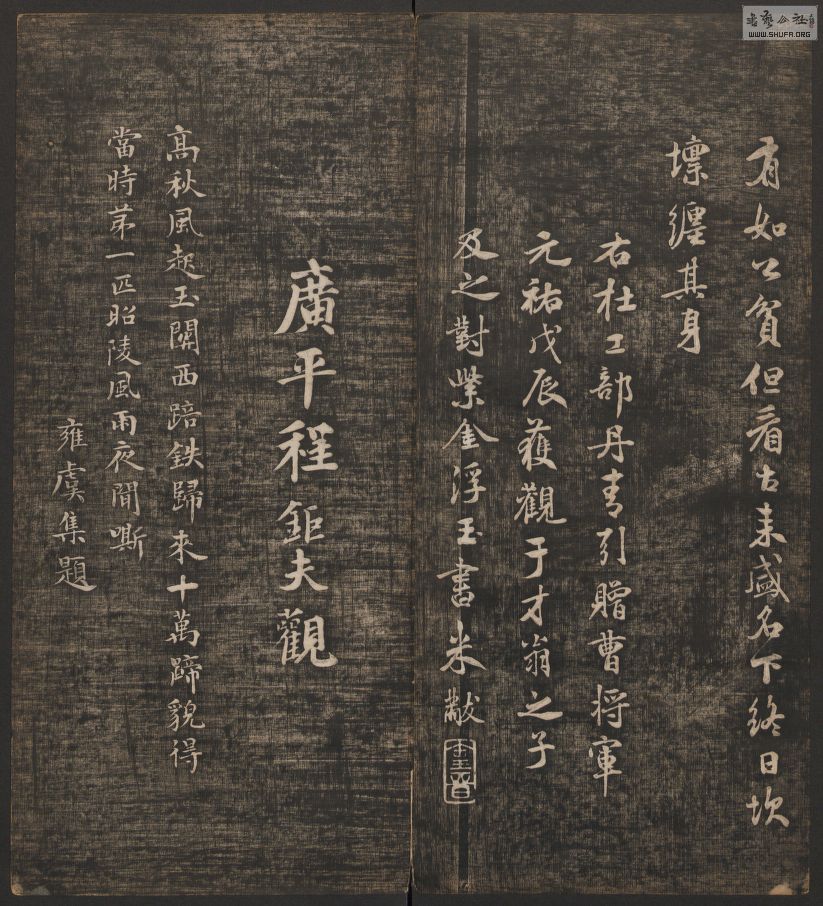 有如公貧但看古来盛名下終日坎
壈纏其身
右杜工部丹青引贈曹将軍
元祐戊辰獲觀于才翁之子
及之對紫金浮玉書米黻
廣平程鉅夫觀
高秋風起玉關西踣鉄歸來十萬蹄貌得
當時苐一匹昭陵風雨夜聞嘶
雍虞集題
書藝公社
WWW.SHUFA.ORG